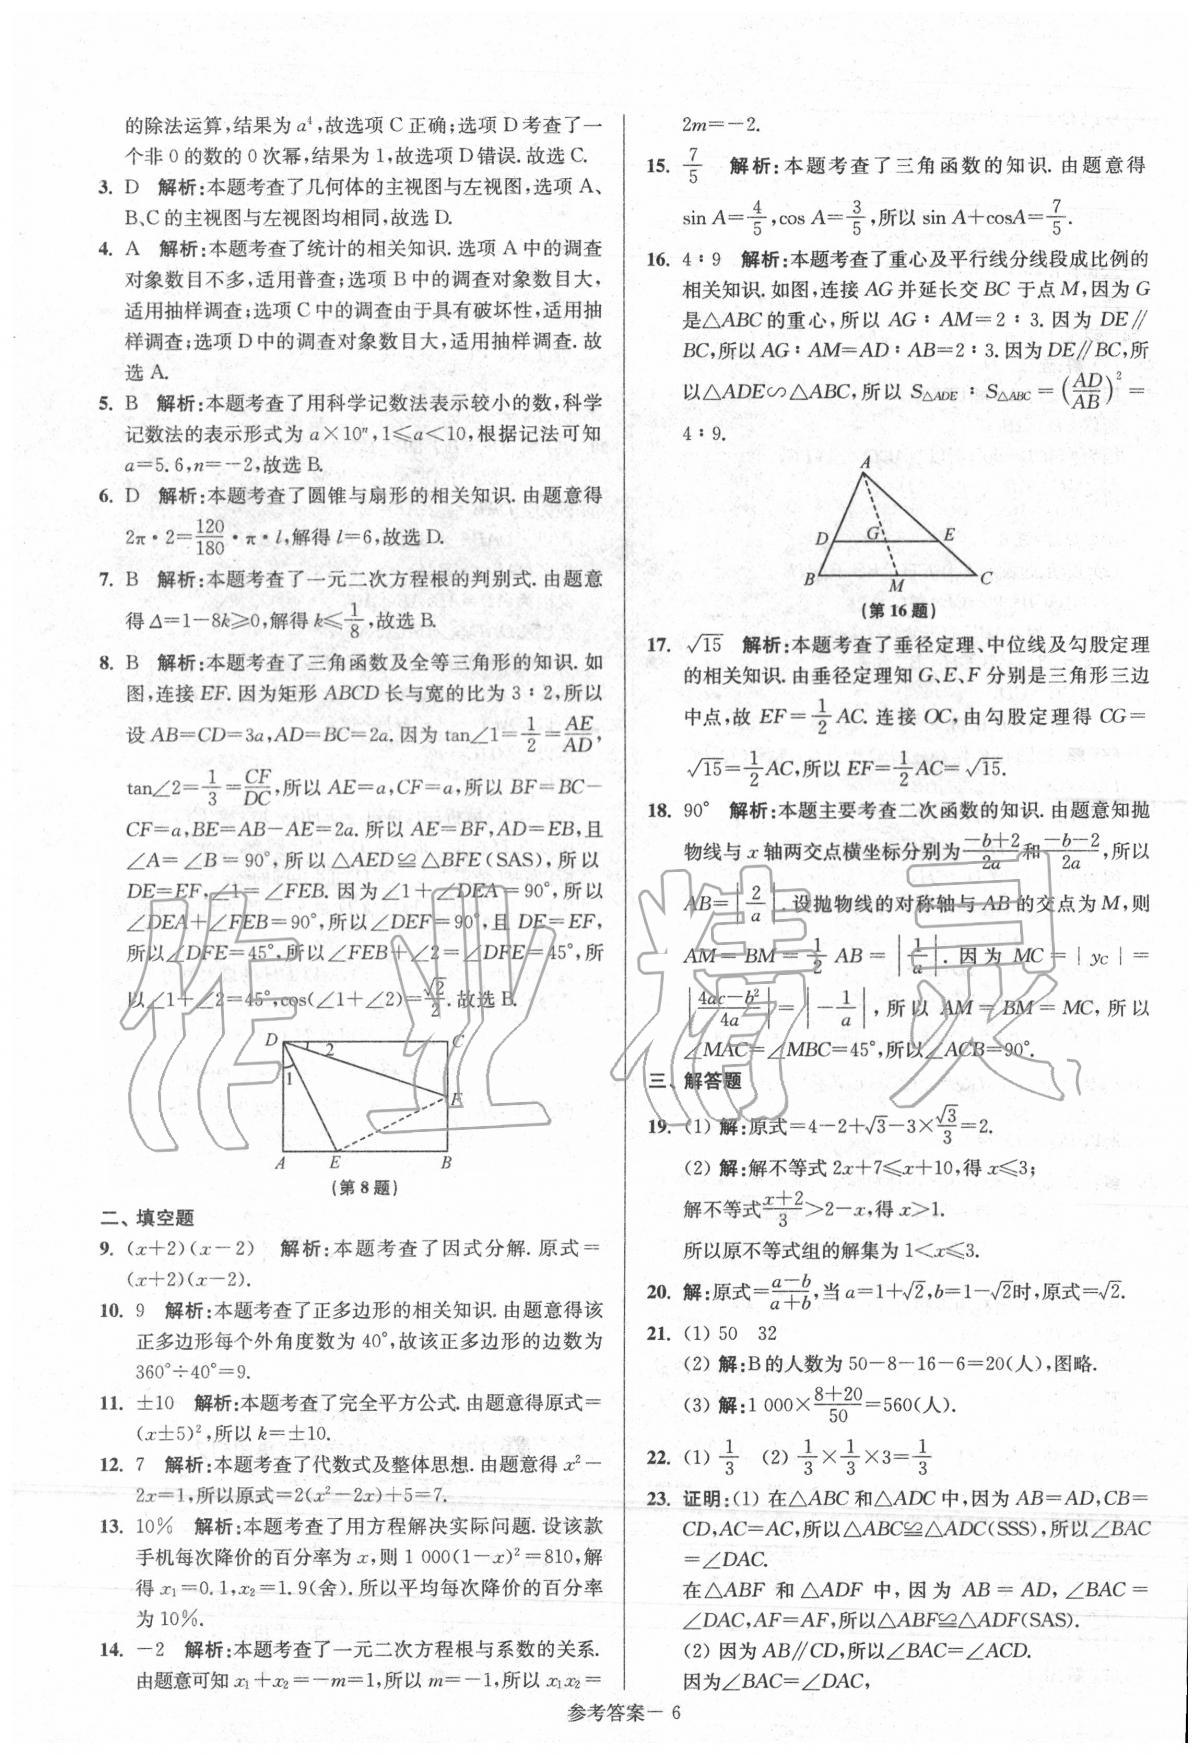 的除法运算,结果为 a⁴,故选项 C 正确;选项 D 考查了一
个非 0 的数的 0 次幂,结果为 1,故选项 D 错误. 故选 C.
3. D 解析:本题考查了几何体的主视图与左视图,选项 A、
B、C 的主视图与左视图均相同,故选 D.
4. A 解析:本题考查了统计的相关知识. 选项 A 中的调查
对象数目不多,适用普查;选项 B 中的调查对象数目大,
适用抽样调查;选项 C 中的调查由于具有破坏性,适用抽
样调查;选项 D 中的调查对象数目大,适用抽样调查. 故
选 A.
5. B 解析:本题考查了用科学记数法表示较小的数,科学
记数法的表示形式为 a×10ⁿ,1≤a<10,根据记法可知
a=5.6,n=-2,故选 B.
6. D 解析:本题考查了圆锥与扇形的相关知识. 由题意得
2π·2=120/180·π·l,解得 l=6,故选 D.
7. B 解析:本题考查了一元二次方程根的判别式. 由题意
得 Δ=1-8k≥0,解得 k≤1/8,故选 B.
8. B 解析:本题考查了三角函数及全等三角形的知识. 如
图,连接 EF. 因为矩形 ABCD 长与宽的比为 3∶2,所以
设 AB=CD=3a,AD=BC=2a. 因为 tan∠1=1/2=AE/AD,
tan∠2=1/3=CF/DC,所以 AE=a,CF=a,所以 BF=BC-
CF=a,BE=AB-AE=2a. 所以 AE=BF,AD=EB,且
∠A=∠B=90°,所以△AED≌△BFE(SAS),所以
DE=EF,∠1=∠FEB. 因为∠1+∠DEA=90°,所以
∠DEA+∠FEB=90°,所以∠DEF=90°,且 DE=EF,
所以∠DFE=45°,所以∠FEB+∠2=∠DFE=45°,所
以∠1+∠2=45°,cos(∠1+∠2)=√2/2. 故选 B.
D 1 2 C
1
F
A E B
(第 8 题)
二、填空题
9. (x+2)(x-2) 解析:本题考查了因式分解. 原式=
(x+2)(x-2).
10. 9 解析:本题考查了正多边形的相关知识. 由题意得该
正多边形每个外角度数为 40°,故该正多边形的边数为
360°÷40°=9.
11. ±10 解析:本题考查了完全平方公式. 由题意得原式=
(x±5)²,所以 k=±10.
12. 7 解析:本题考查了代数式及整体思想. 由题意得 x²-
2x=1,所以原式=2(x²-2x)+5=7.
13. 10% 解析:本题考查了用方程解决实际问题. 设该款
手机每次降价的百分率为 x,则 1 000(1-x)²=810,解
得 x₁=0.1,x₂=1.9(舍). 所以平均每次降价的百分率
为 10%.
14. -2 解析:本题考查了一元二次方程根与系数的关系.
由题意可知 x₁+x₂=-m=1,所以 m=-1,所以 x₁x₂=
2m=-2.
15. 7/5 解析:本题考查了三角函数的知识. 由题意得
sin A=4/5,cos A=3/5,所以 sin A+cosA=7/5.
16. 4∶9 解析:本题考查了重心及平行线分线段成比例的
相关知识. 如图,连接 AG 并延长交 BC 于点 M,因为 G
是△ABC 的重心,所以 AG∶AM=2∶3. 因为 DE∥
BC,所以 AG∶AM=AD∶AB=2∶3. 因为 DE∥BC,所
以△ADE∽△ABC,所以 S△ADE∶S△ABC=(AD/AB)²=
4∶9.
A
D G E
B M C
(第 16 题)
17. √15 解析:本题考查了垂径定理、中位线及勾股定理
的相关知识. 由垂径定理知 G、E、F 分别是三角形三边
中点,故 EF=1/2 AC. 连接 OC,由勾股定理得 CG=
√15=1/2 AC,所以 EF=1/2 AC=√15.
18. 90° 解析:本题主要考查二次函数的知识. 由题意知抛
物线与 x 轴两交点横坐标分别为(-b+2)/2a和(-b-2)/2a,所以
AB=|2/a|. 设抛物线的对称轴与 AB 的交点为 M,则
AM=BM=1/2 AB=|1/a|. 因为 MC=|yC|=
|(4ac-b²)/4a|=|-1/a|,所以 AM=BM=MC,所以
∠MAC=∠MBC=45°,所以∠ACB=90°.
三、解答题
19. (1) 解:原式=4-2+√3-3×√3/3=2.
(2) 解:解不等式 2x+7≤x+10,得 x≤3;
解不等式(x+2)/3>2-x,得 x>1.
所以原不等式组的解集为 1<x≤3.
20. 解:原式=(a-b)/(a+b),当 a=1+√2,b=1-√2时,原式=√2.
21. (1) 50 32
(2) 解:B的人数为 50-8-16-6=20(人),图略.
(3) 解:1 000×(8+20)/50=560(人).
22. (1) 1/3 (2) 1/3×1/3×3=1/3
23. 证明:(1) 在△ABC 和△ADC 中,因为 AB=AD,CB=
CD,AC=AC,所以△ABC≌△ADC(SSS),所以∠BAC
=∠DAC.
在△ABF 和△ADF 中,因为 AB=AD,∠BAC=
∠DAC,AF=AF,所以△ABF≌△ADF(SAS).
(2) 因为 AB∥CD,所以∠BAC=∠ACD.
因为∠BAC=∠DAC,
参考答案— 6
作业精灵